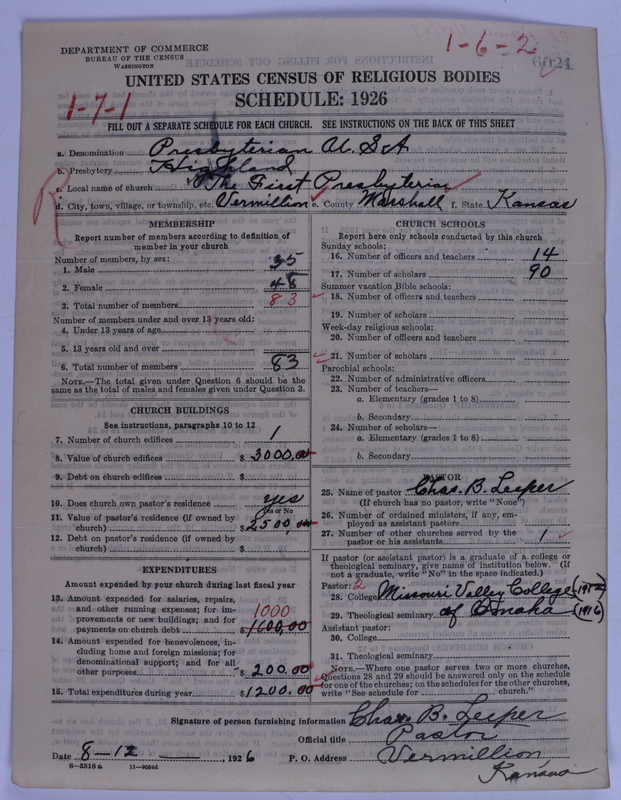 DEPARTMENT OF COMMERCE
BUREAU OF THE CENSUS
WASHINGTON
1-6-2
6024
UNITED STATES CENSUS OF RELIGIOUS BODIES
1-7-1
SCHEDULE: 1926
FILL OUT A SEPARATE SCHEDULE FOR EACH CHURCH. SEE INSTRUCTIONS ON THE BACK OF THIS SHEET
a. Denomination Presbyterian U.S.A
b. Presbytery Highland
c. Local name of church The First Presbyterian
d. City, town, village, or township, etc. Vermillion e. County Marshall f. State Kansas
MEMBERSHIP
Report number of members according to definition of
member in your church
Number of members, by sex:
1. Male 35
2. Female 48
3. Total number of members 83
Number of members under and over 13 years old:
4. Under 13 years of age
5. 13 years old and over
6. Total number of members 83
NOTE.—The total given under Question 6 should be the
same as the total of males and females given under Question 3.
CHURCH BUILDINGS
See instructions, paragraphs 10 to 12
7. Number of church edifices 1
8. Value of church edifices $3000,00
9. Debt on church edifices $
10. Does church own pastor's residence yes
Yes or No
11. Value of pastor's residence (if owned by
church) $2500,00
12. Debt on pastor's residence (if owned by
church) $
EXPENDITURES
Amount expended by your church during last fiscal year
13. Amount expended for salaries, repairs,
and other running expenses; for im-
provements or new buildings; and for
payments on church debt 1000 $1600,00
14. Amount expended for benevolences, in-
cluding home and foreign missions; for
denominational support; and for all
other purposes $200.00
15. Total expenditures during year $1200.00
CHURCH SCHOOLS
Report here only schools conducted by this church
Sunday schools:
16. Number of officers and teachers 14
17. Number of scholars 90
Summer vacation Bible schools:
18. Number of officers and teachers
19. Number of scholars
Week-day religious schools:
20. Number of officers and teachers
21. Number of scholars
Parochial schools:
22. Number of administrative officers
23. Number of teachers—
a. Elementary (grades 1 to 8)
b. Secondary
24. Number of scholars—
a. Elementary (grades 1 to 8)
b. Secondary
PASTOR
25. Name of pastor Chas. B. Leeper
(If church has no pastor, write "None")
26. Number of ordained ministers, if any, em-
ployed as assistant pastors
27. Number of other churches served by the
pastor or his assistants 1
If pastor (or assistant pastor) is a graduate of a college or
theological seminary, give name of institution below. (If
not a graduate, write "No" in the space indicated.)
Pastor: 2
28. College Missouri Valley College (1912)
29. Theological seminary of Omaha (1916)
Assistant pastor:
30. College
31. Theological seminary
NOTE.—Where one pastor serves two or more churches,
Questions 28 and 29 should be answered only on the schedule
for one of the churches; on the schedules for the other churches,
write "See schedule for church."
Signature of person furnishing information Chas. B. Leeper
Official title Pastor
Date 8-12, 1926 P. O. Address Vermillion,
Kansas
8—5518 a 11—9054d